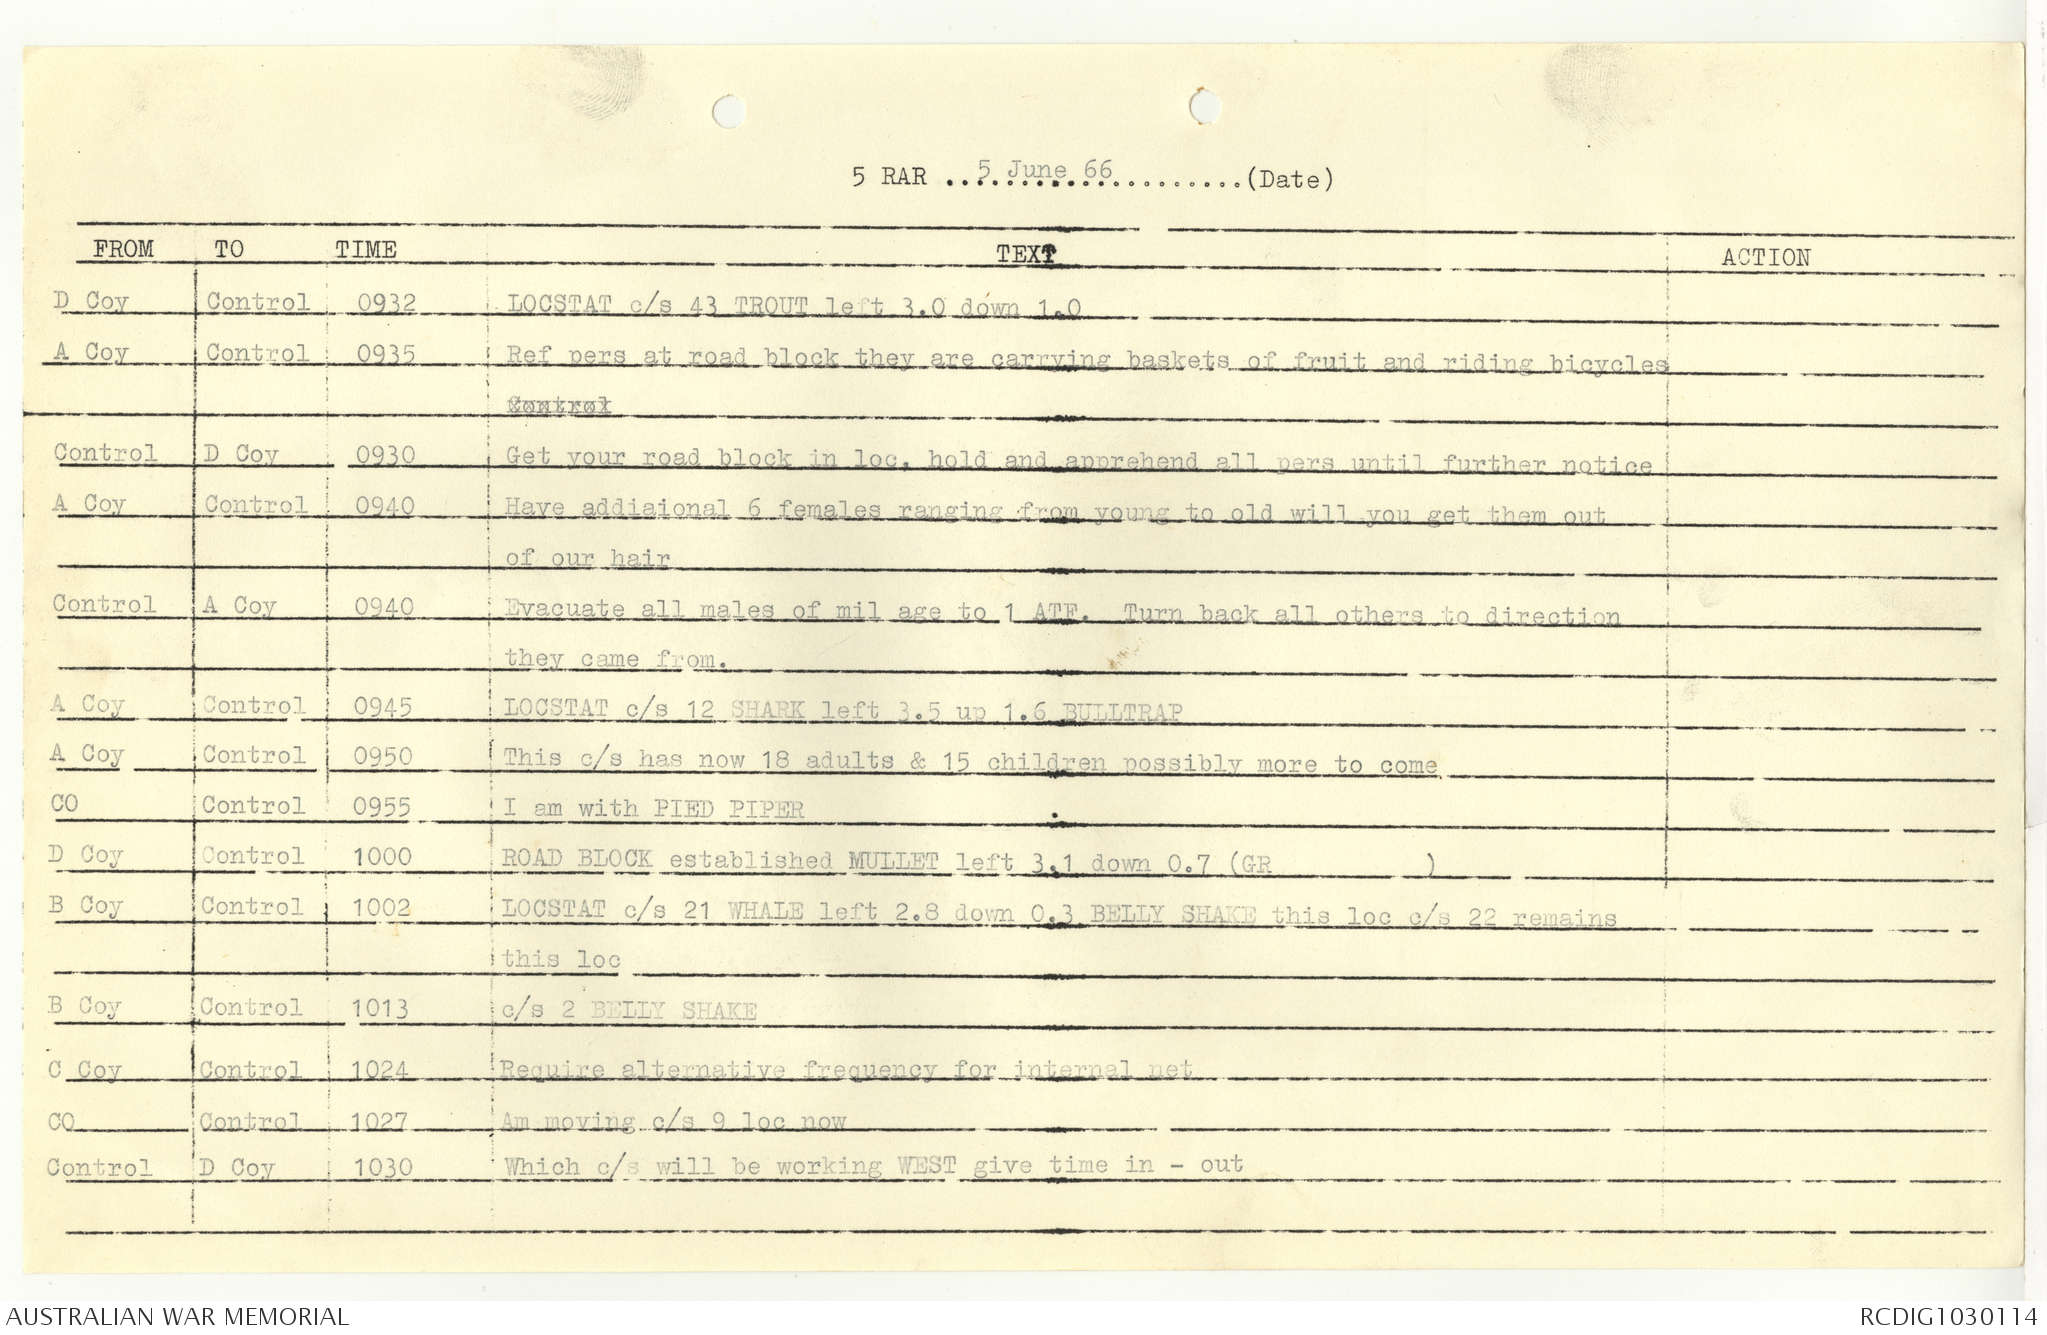 5 RAR ...5 June 66.........(Date)
FROM TO TIME TEXT ACTION
D Coy Control 0932 LOCSTAT c/s 43 TROUT left 3.0 down 1.0
A Coy Control 0935 Ref pers at road block they are carrying baskets of fruit and riding bicycles
Control
Control D Coy 0930 Get your road block in loc, hold and apprehend all pers until further notice
A Coy Control 0940 Have addiaional 6 females ranging from young to old will you get them out
of our hair
Control A Coy 0940 Evacuate all males of mil age to 1 ATF. Turn back all others to direction
they came from.
A Coy Control 0945 LOCSTAT c/s 12 SHARK left 3.5 up 1.6 BULLTRAP
A Coy Control 0950 This c/s has now 18 adults & 15 children possibly more to come
CO Control 0955 I am with PIED PIPER
D Coy Control 1000 ROAD BLOCK established MULLET left 3.1 down 0.7 (GR )
B Coy Control 1002 LOCSTAT c/s 21 WHALE left 2.8 down 0.3 BELLY SHAKE this loc c/s 22 remains
this loc
B Coy Control 1013 c/s 2 BELLY SHAKE
C Coy Control 1024 Require alternative frequency for internal net
CO Control 1027 Am moving c/s 9 loc now
Control D Coy 1030 Which c/s will be working WEST give time in - out
AUSTRALIAN WAR MEMORIAL RCDIG1030114